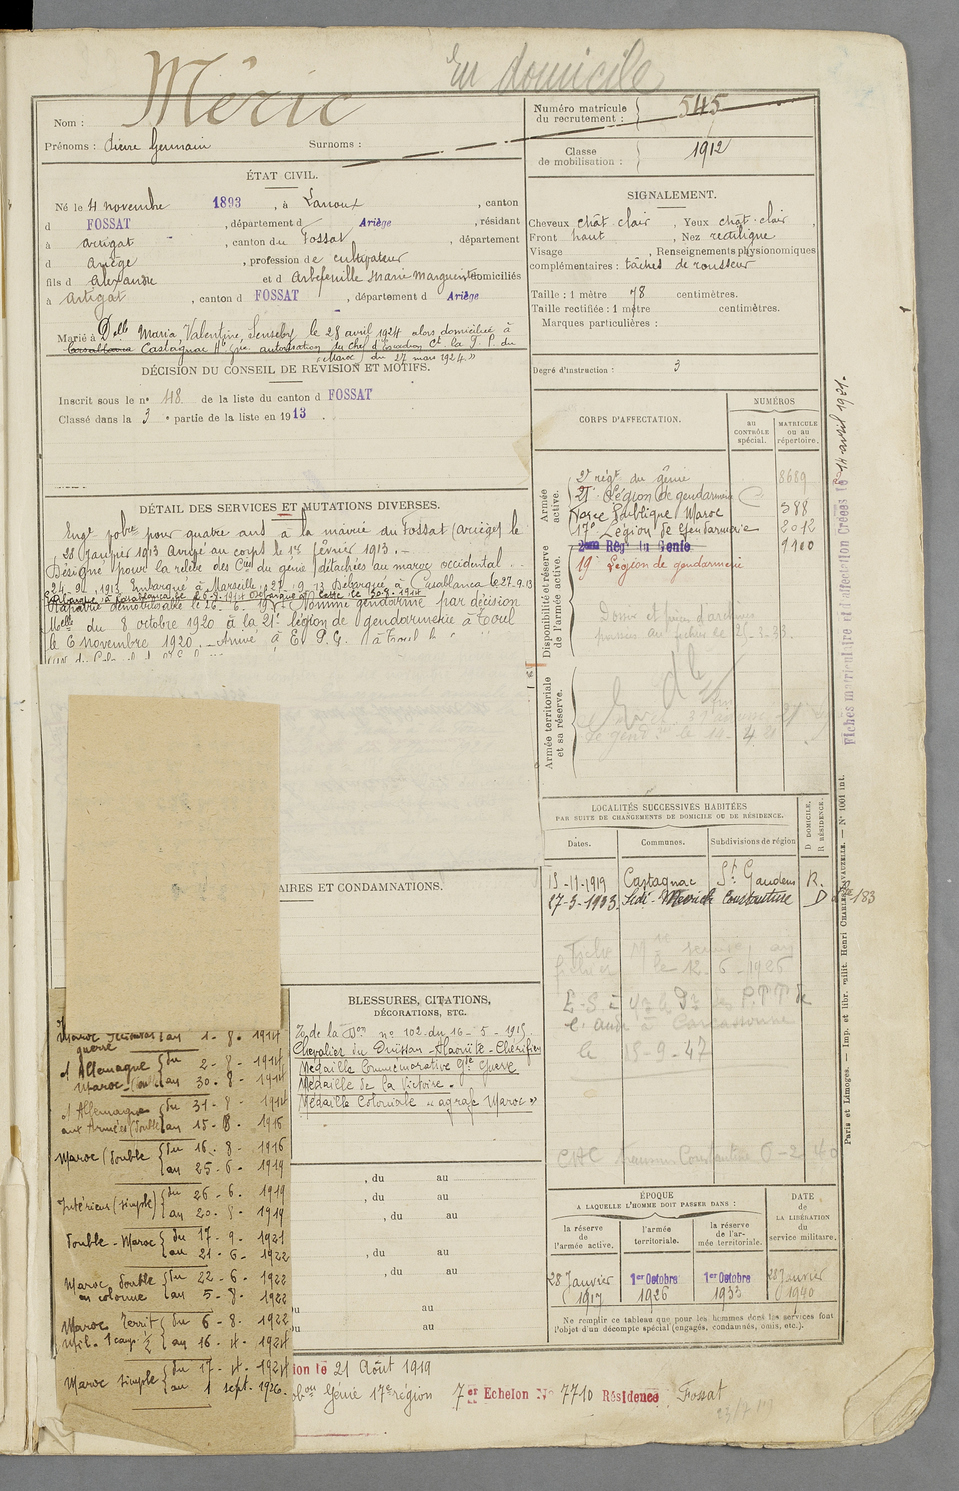 En domicile
Méric
Nom :
Prénoms : Pierre Germain Surnoms :
Numéro matricule du recrutement : 545
Classe de mobilisation : 1912
ÉTAT CIVIL.
Né le 4 novembre 1893, à Lanoux, canton
d FOSSAT, département d Ariège, résidant
à Artigat, canton du Fossat, département
d Ariège, profession de cultivateur
fils d Alexandre et d Arbefeuille Marie Marguerite domiciliés
à Artigat, canton d FOSSAT, département d Ariège
Marié à Delle Maria, Valentine, Senseby le 28 avril 1924 alors domiciliée à
Casablanca Castagnac Hte Gne autorisation du Chef d'Escadron Ct la F. P. du
(Maroc) du 27 mars 1924 »
SIGNALEMENT.
Cheveux chât-clair, Yeux chât-clair,
Front haut, Nez rectiligne
Visage , Renseignements physionomiques
complémentaires : tâches de rousseur
Taille : 1 mètre 78 centimètres.
Taille rectifiée : 1 mètre centimètres.
Marques particulières :
Degré d'instruction : 3
DÉCISION DU CONSEIL DE REVISION ET MOTIFS.
Inscrit sous le n° 48 de la liste du canton d FOSSAT
Classé dans la 3 e partie de la liste en 1913.
DÉTAIL DES SERVICES ET MUTATIONS DIVERSES.
Engé volre pour quatre ans à la mairie du Fossat (ariège) le
28 Janvier 1913 Arrivé au corps le 1er février 1913. -
Désigné pour la relève des Cies du génie détachées au maroc occidental
24-9-1913 Embarqué à Marseille 9.13 Débarqué à Casablanca le 27-9.13
Rapatrié démobilisable le 26-6-19 Nommé gendarme par décision
Melle du 8 octobre 1920 à la 21e légion de gendarmerie à Toul
le 6 novembre 1920. - Arrivé à E. P. G. à Toul le
CORPS D'AFFECTATION.
NUMÉROS
au CONTRÔLE spécial.
MATRICULE ou au répertoire.
Armée active.
2e régt du génie 8689
21e Légion de gendarmerie
Force Publique Maroc 588
17e Légion de Gendarmerie 2012
Disponibilité et réserve de l'armée active.
2eme Régt du Génie 9100
19e Légion de gendarmerie
Armée territoriale et sa réserve.
Fiches matriculaire et d'affectation Créées le 14 avril 1921.
LOCALITÉS SUCCESSIVES HABITÉES
PAR SUITE DE CHANGEMENTS DE DOMICILE OU DE RÉSIDENCE.
Dates. Communes. Subdivisions de région
D DOMICILE. R RÉSIDENCE.
15-11-1919 Castagnac St Gaudens R.
27-5-1933. Sidi- Constantine D
Fiche Mle remise au
fichier le 12-6-1926
l'Aude à Carcassonne
le 15-9-47
AIRES ET CONDAMNATIONS.
BLESSURES, CITATIONS,
DÉCORATIONS, ETC.
de la Don n° 102 du 16-5-1915.
Chevalier du Ouissam-Alaouite-Chérifien
Médaille Commémorative Gde Guerre
Médaille de la Victoire.
Médaille Coloniale « agrafe Maroc »
, du au
, du au
, du au
, du au
, du au
du au
du au
guerre
au 1-8-1914
d'Allemagne du 2-8-1914
Maroc-Double au 30-8-1914
d'Allemagne du 31-8-1914
aux Armées (double) au 15-8-1916
Maroc (double du 16-8-1916
au 25-6-1919
Intérieur (simple) du 26-6-1919
au 20-8-1919
Double-Maroc du 17-9-1921
au 21-6-1922
Maroc double du 22-6-1922
en colonne au 5-8-1922
Maroc Territ du 6-8-1922
Mil. 1 camp. ½ au 16-4-1924
Maroc simple du 17-4-1924
au 1 sept. 1926.
ÉPOQUE
A LAQUELLE L'HOMME DOIT PASSER DANS :
la réserve de l'armée active.
l'armée territoriale.
la réserve de l'armée territoriale.
DATE de LA LIBÉRATION du service militaire.
28 Janvier 1917
1er Octobre 1926
1er Octobre 1933
28 Janvier 1940
Ne remplir ce tableau que pour les hommes dont les services font
l'objet d'un décompte spécial (engagés, condamnés, omis, etc.).
Paris et Limoges. — Imp. et libr. milit. Henri CHARLES-LAVAUZELLE. — N° 1001 int.
ion le 21 Août 1919
Génie 17e région 7er Echelon No 7710 Résidence Fossat